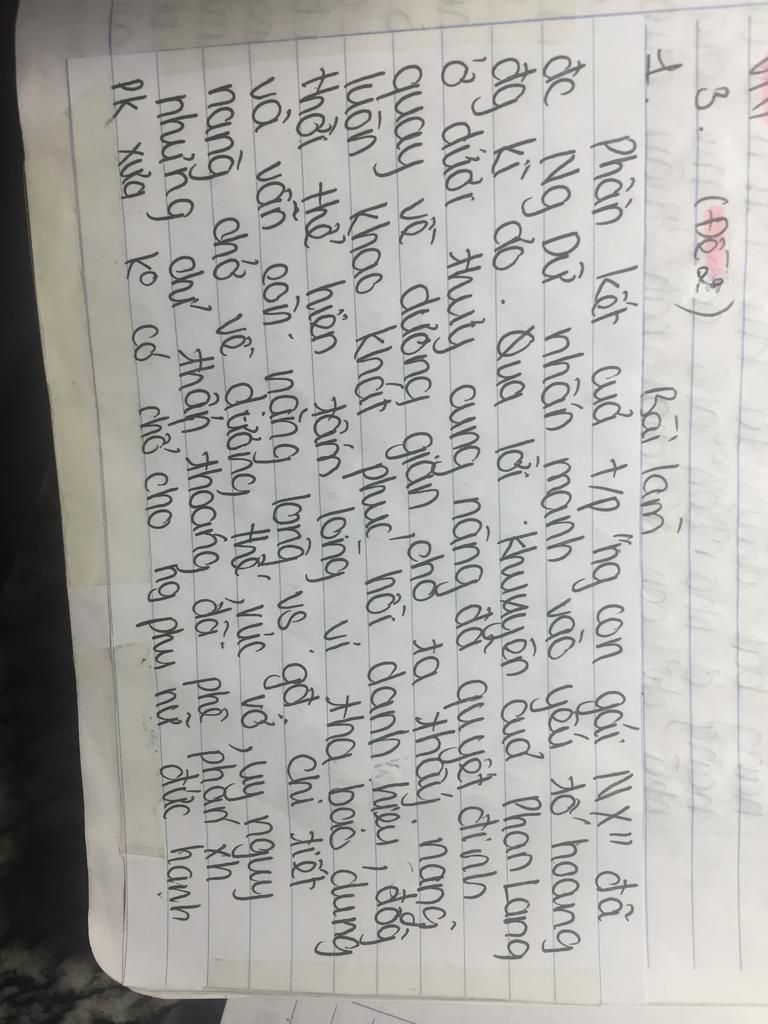 3. (Đề 2)
Bài làm
1.
Phần kết cuả t/p "ng con gái NX" đã
đc Ng Dữ nhấn mạnh vào yếu tố hoang
đg kì ảo. Qua lời khuyên cuả Phan Lang
ở dưới thuỷ cung nàng đã quyết định
quay về dương gian, cho ta thấy nàng
luôn khao khát phục hồi danh hiệu, đồng
thời thể hiện tấm lòng vị tha bao dung
và vẫn còn nặng lòng vs gđ. Chi tiết
nàng chở về dương thế, rức rỡ, uy nguy
nhưng chỉ thấp thoáng đã phê phán xh
pk xưa ko có chỗ cho ng phụ nữ đức hạnh